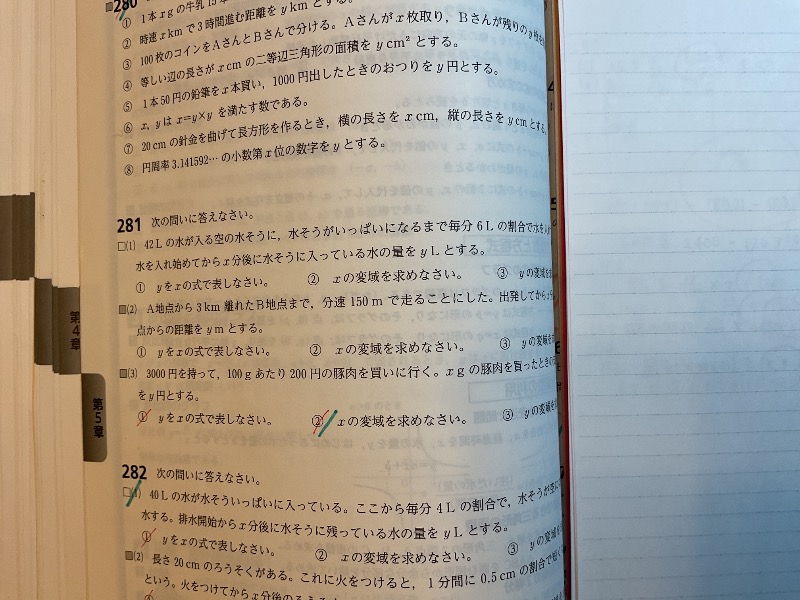 280
① 1本 x g の牛乳15
② 時速 x km で3時間進む距離を y km とする。
③ 100枚のコインをAさんとBさんで分ける。Aさんが x 枚取り，Bさんが残りの y 枚を
④ 等しい辺の長さが x cm の二等辺三角形の面積を y cm² とする。
⑤ 1本50円の鉛筆を x 本買い，1000円出したときのおつりを y 円とする。
⑥ x, y は x=y×y を満たす数である。
⑦ 20 cm の針金を曲げて長方形を作るとき，横の長さを x cm，縦の長さを y cm とする。
⑧ 円周率 3.141592… の小数第 x 位の数字を y とする。
281 次の問いに答えなさい。
□(1) 42 L の水が入る空の水そうに，水そうがいっぱいになるまで毎分 6 L の割合で水を
水を入れ始めてから x 分後に水そうに入っている水の量を y L とする。
① y を x の式で表しなさい。 ② x の変域を求めなさい。 ③ y の変域を
(2) A地点から 3 km 離れたB地点まで，分速 150 m で走ることにした。出発してから
点からの距離を y m とする。
① y を x の式で表しなさい。 ② x の変域を求めなさい。 ③ y の変域を
(3) 3000円を持って，100 g あたり 200 円の豚肉を買いに行く。x g の豚肉を買ったときの
を y 円とする。
① y を x の式で表しなさい。 ② x の変域を求めなさい。 ③ y の変域を
第4章
第5章
282 次の問いに答えなさい。
□(1) 40 L の水が水そういっぱいに入っている。ここから毎分 4 L の割合で，水そうが空に
水する。排水開始から x 分後に水そうに残っている水の量を y L とする。
① y を x の式で表しなさい。 ② x の変域を求めなさい。 ③ y の変域を
(2) 長さ 20 cm のろうそくがある。これに火をつけると，1 分間に 0.5 cm の割合で
という。火をつけてから x 分後の